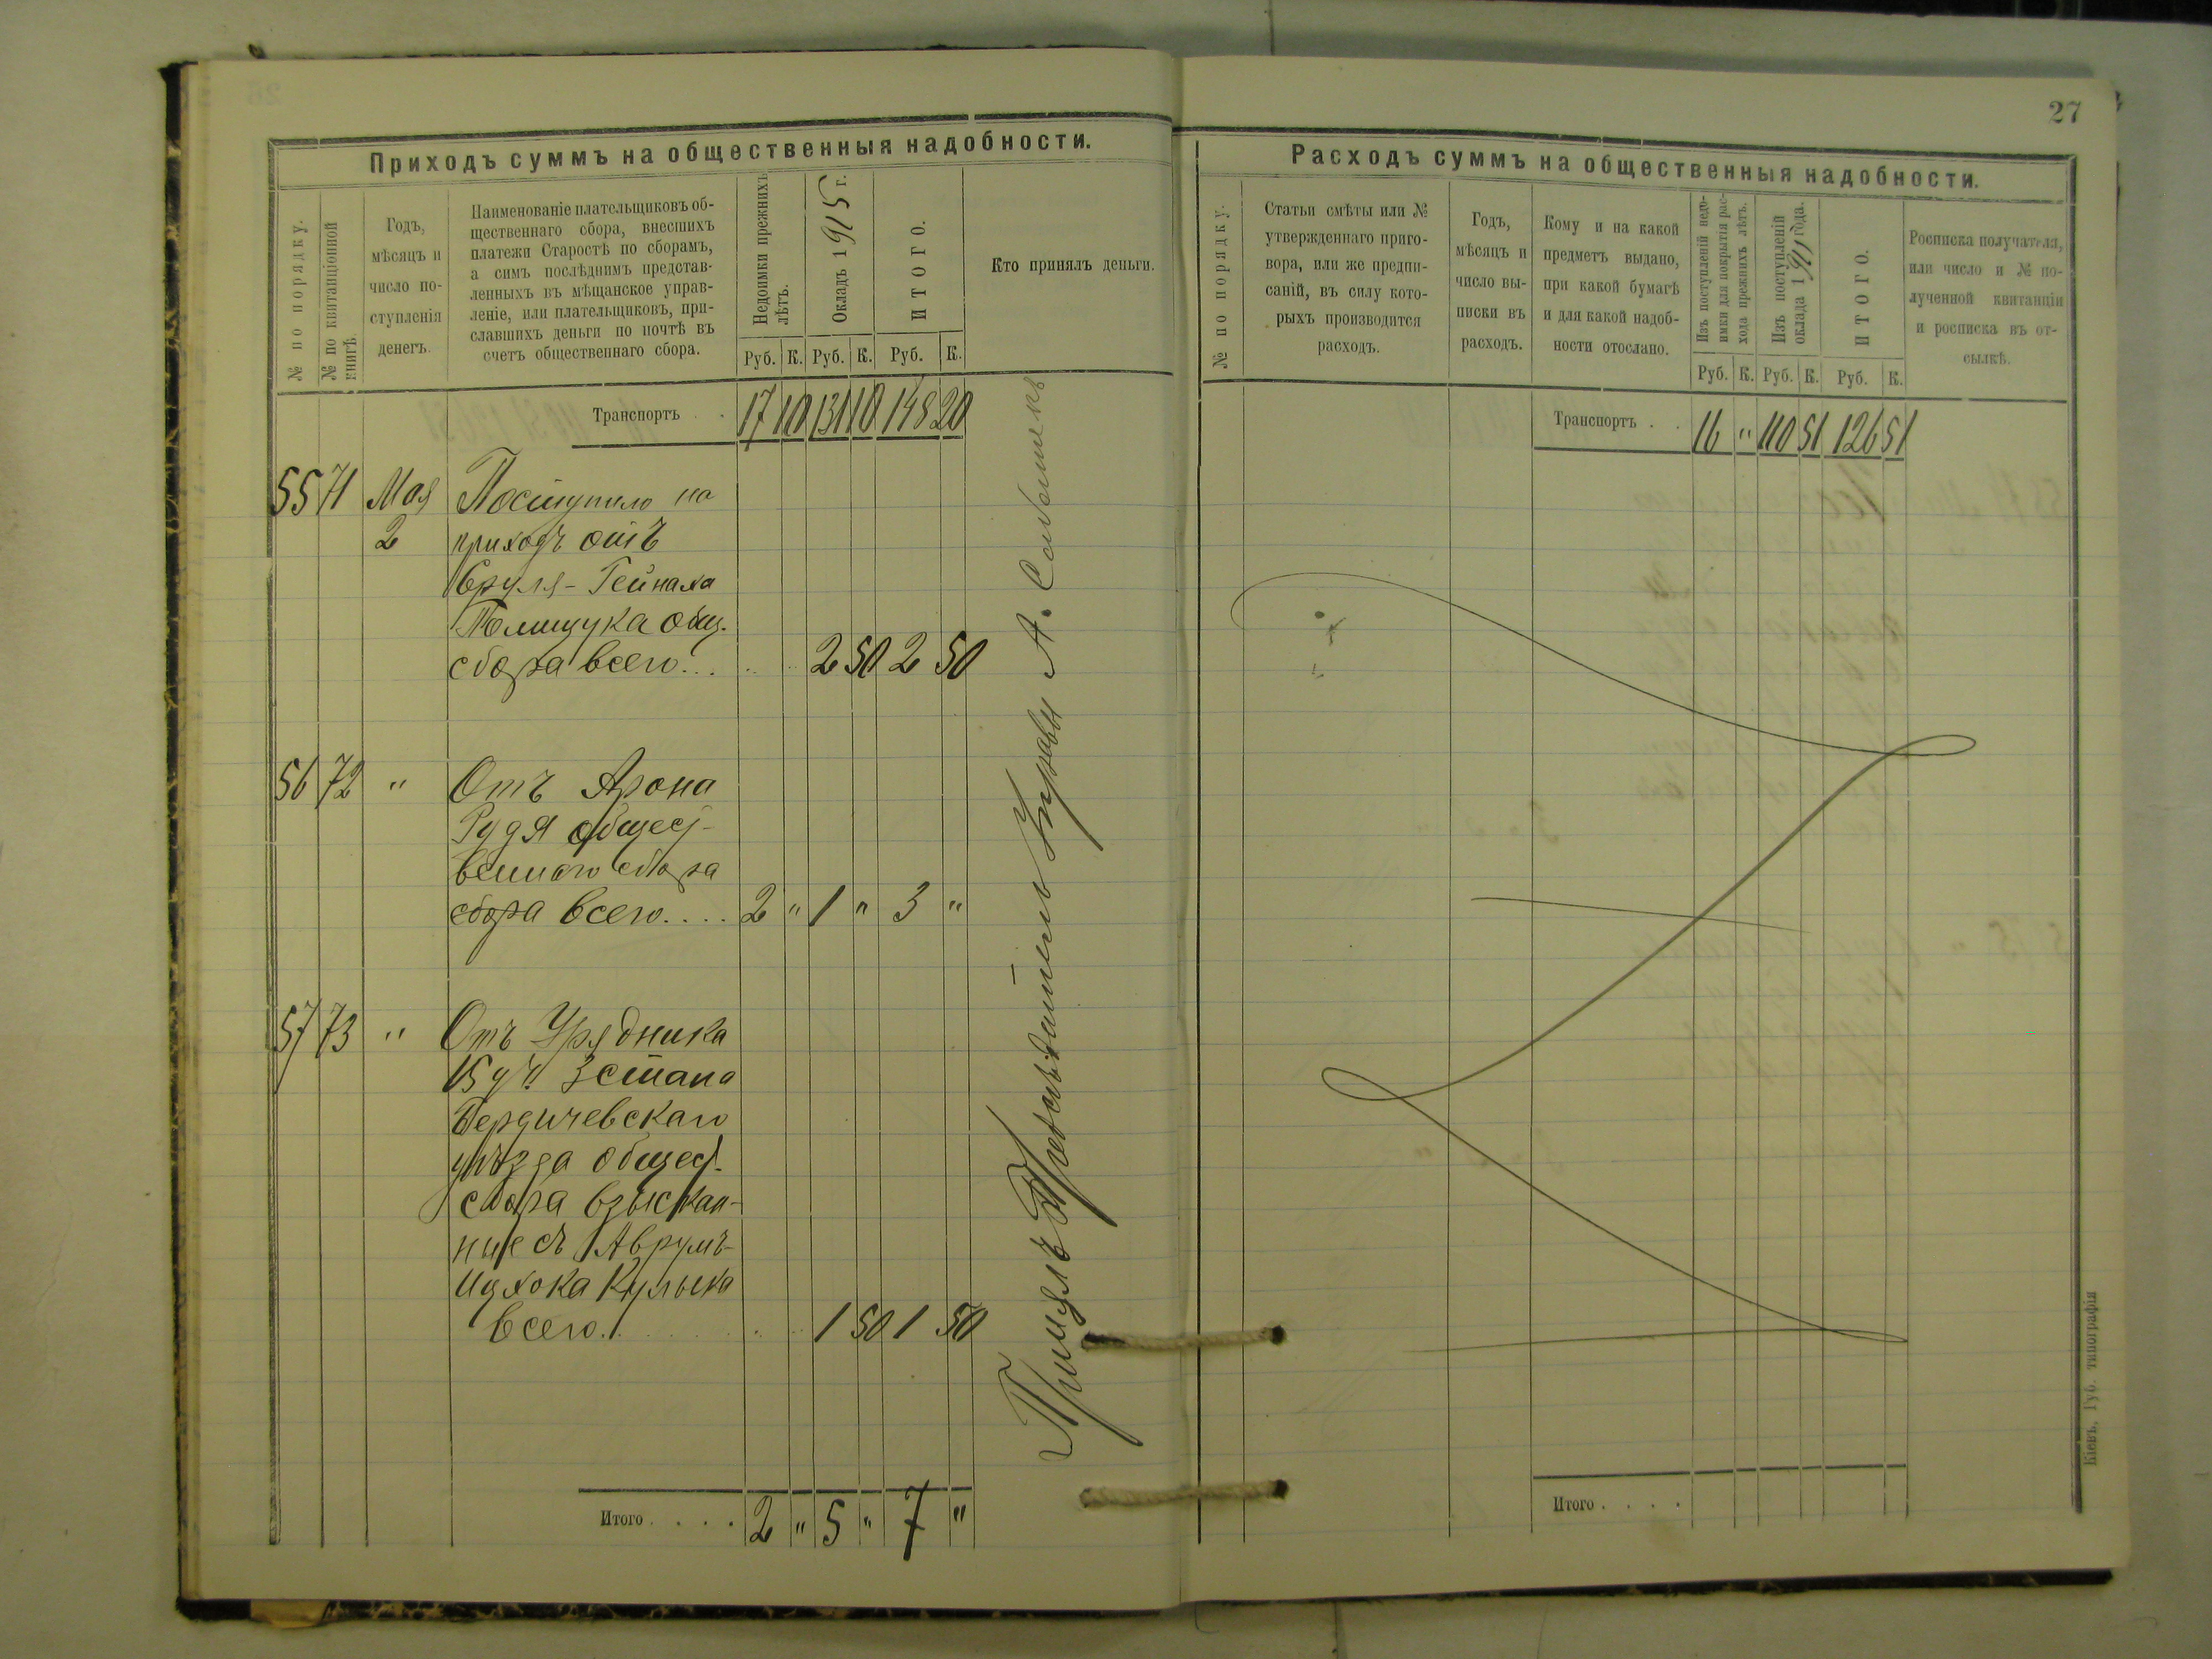 27
Приходъ суммъ на общественныя надобности.
№ по порядку.
№ по квитанціонной книгѣ.
Годъ,
мѣсяцъ и
число по-
ступленія
денегъ.
Наименованіе плательщиковъ об-
щественнаго сбора, внесшихъ
платежи Старостѣ по сборамъ,
а симъ послѣднимъ представ-
ленныхъ въ мѣщанское управ-
леніе, или плательщиковъ, при-
славшихъ деньги по почтѣ въ
счетъ общественнаго сбора.
Недоимки прежнихъ лѣтъ.
Окладъ 1915 г.
ИТОГО.
Кто принялъ деньги.
Руб. К. Руб. К. Руб. К.
Транспортъ . . 17 10 131 10 148 20
55 71 Мая Поступило на
2 приходъ отъ
Сруля-Гейнаха
Полищука общ.
сбора всего... 2 50 2 50
56 72 " Отъ Арона
Рудя общест-
веннаго сбора
сбора всего.... 2 " 1 " 3 "
57 73 " Отъ Урядника
15 уч. 3 стана
Бердичевскаго
уѣзда общест.
сбора взыскан-
ные съ Аврумъ-
Кулыка
всего. 1 50 1 50
Итого . . . . 2 " 5 " 7 "
Принялъ Предсѣдатель Управы А.
Расходъ суммъ на общественныя надобности.
№ по порядку.
Статьи смѣты или №
утвержденнаго приго-
вора, или же предпи-
саній, въ силу кото-
рыхъ производится
расходъ.
Годъ,
мѣсяцъ и
число вы-
писки въ
расходъ.
Кому и на какой
предметъ выдано,
при какой бумагѣ
и для какой надоб-
ности отослано.
Изъ поступленій недо-
имки для покрытія рас-
хода прежнихъ лѣтъ.
Изъ поступленій
оклада 1915 года.
ИТОГО.
Росписка получателя,
или число и № по-
лученной квитанціи
и росписка въ от-
сылкѣ.
Руб. К. Руб. К. Руб. К.
Транспортъ . . 16 " 110 51 126 51
Итого . . . .
Кіевъ, Губ. типографія